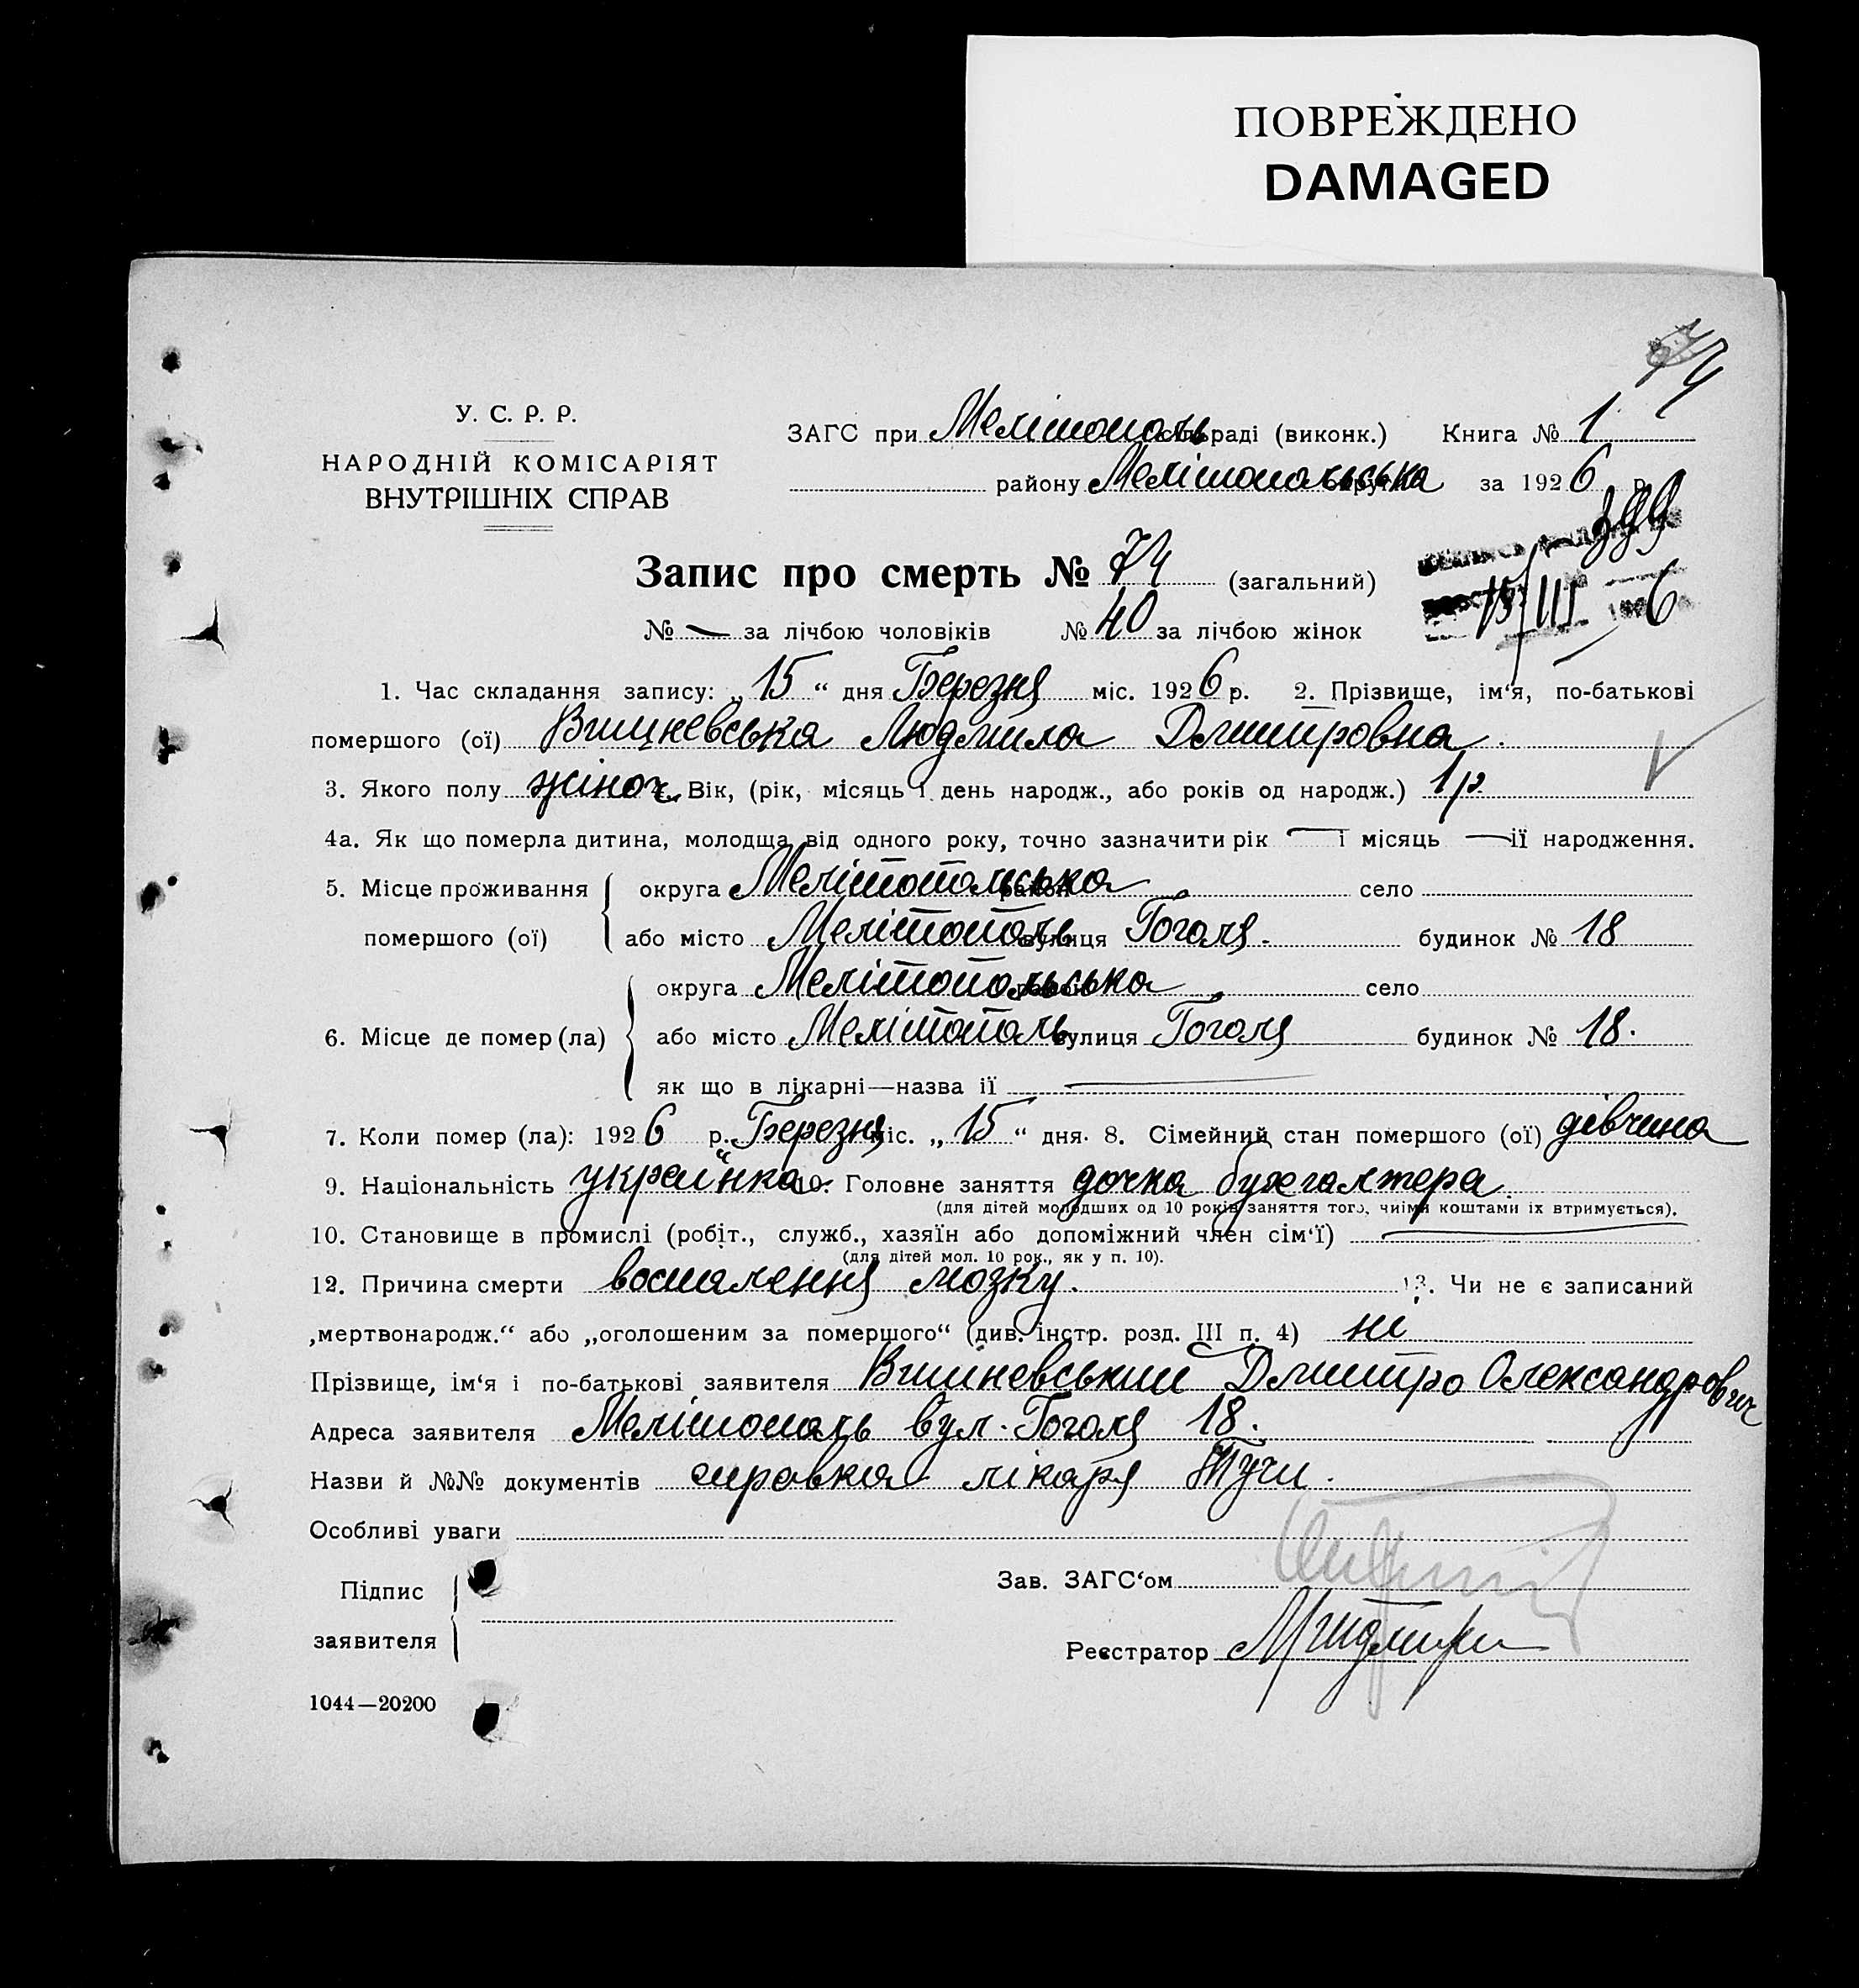 ПОВРЕЖДЕНО
DAMAGED
74
У. С. Р. Р.
НАРОДНІЙ КОМІСАРІЯТ
ВНУТРІШНІХ СПРАВ
ЗАГС при Мелітополь сільраді (виконк.) Книга № 1
району Мелітопольська округи за 1926 р.
399
Запис про смерть № 74 (загальний)
15/III 1926
№ — за лічбою чоловіків № 40 за лічбою жінок
1. Час складання запису: „15“ дня Березня міс. 1926 р. 2. Прізвище, ім‘я, по-батькові
помершого (ої) Вишневська Людмила Дмитровна.
3. Якого полу жіноч. Вік, (рік, місяць і день народж., або років од народж.) 1 р.
4а. Як що померла дитина, молодща від одного року, точно зазначити рік — і місяць — ії народження.
5. Місце проживання помершого (ої) округа Мелітопольська район село
або місто Мелітополь вулиця Гоголя. будинок № 18
6. Місце де помер (ла) округа Мелітопольська район село
або місто Мелітополь вулиця Гоголя будинок № 18.
як що в лікарні—назва ії —
7. Коли помер (ла): 1926 р. Березня міс. „15“ дня. 8. Сімейний стан помершого (ої) дівчина
9. Національність українка 10. Головне заняття дочка бухгалтера.
(для дітей молодших од 10 років заняття того, чиїми коштами їх втримується).
10. Становище в промислі (робіт., служб., хазяїн або допоміжний член сім‘ї) —
(для дітей мол. 10 рок., як у п. 10).
12. Причина смерти воспалення мозку. 13. Чи не є записаний
„мертвонародж.“ або „оголошеним за помершого“ (див. інстр. розд. III п. 4) ні
Прізвище, ім‘я і по-батькові заявителя Вишневський Дмитро Олександрович
Адреса заявителя Мелітополь вул. Гоголя 18.
Назви й №№ документів справка лікаря Тучи.
Особливі уваги
Підпис заявителя
Зав. ЗАГС‘ом
Реєстратор
1044—20200